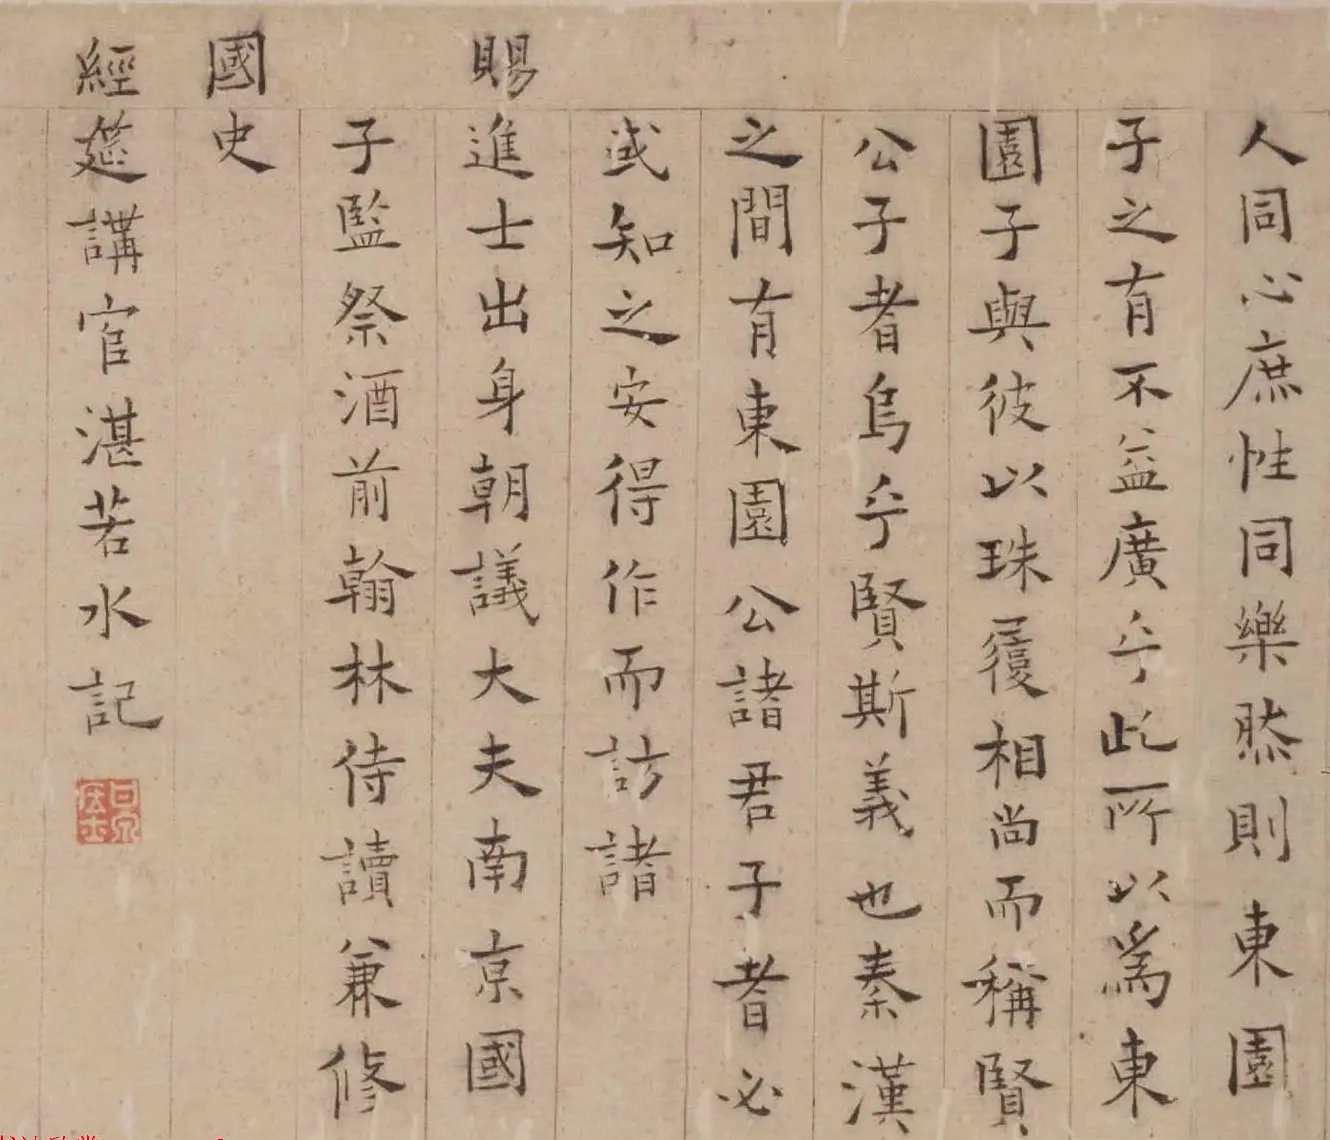 人同心庶性同樂然則東園
子之有不益廣乎此所以為東
園子與彼以珠履相尚而稱賢
公子者烏乎賢斯義也秦漢
之間有東園公諸君子者必
或知之安得作而訪諸
賜進士出身朝議大夫南京國
子監祭酒前翰林侍讀兼修
國史
經筵講官湛若水記